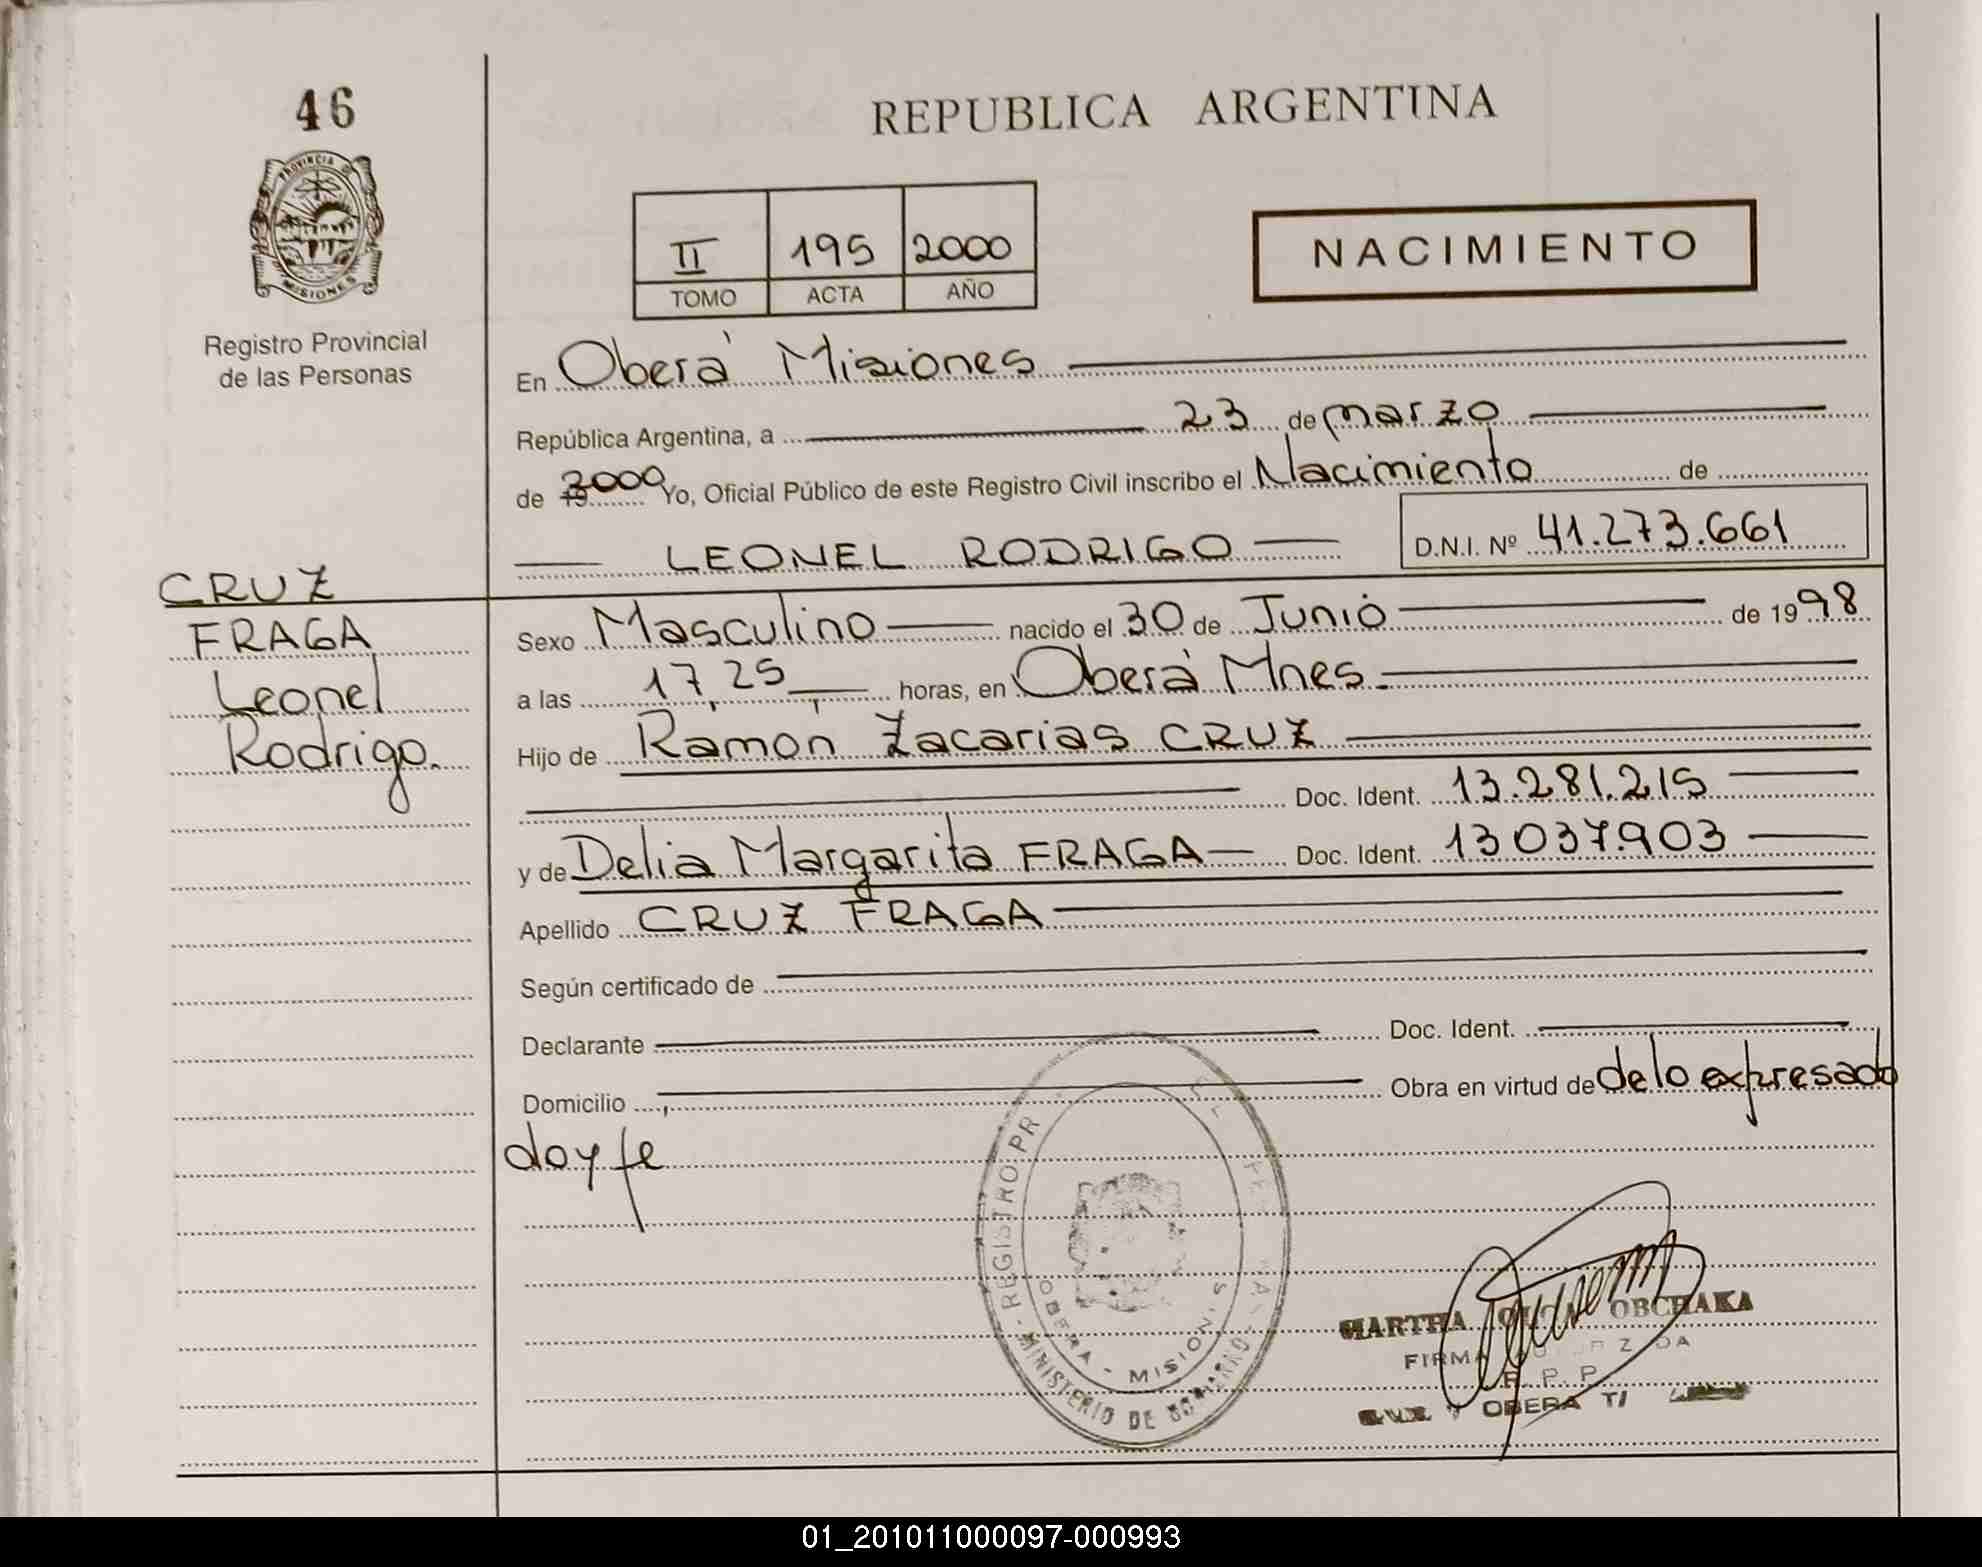 46
PROVINCIA DE
MISIONES
Registro Provincial
de las Personas
REPUBLICA ARGENTINA
II 195 2000
TOMO ACTA AÑO
NACIMIENTO
En Oberá Misiones
República Argentina, a 23 de marzo
de 19 2000 Yo, Oficial Público de este Registro Civil inscribo el Nacimiento de
LEONEL RODRIGO D.N.I. Nº 41.273.661
CRUZ
FRAGA
Leonel
Rodrigo.
Sexo Masculino nacido el 30 de Junio de 1998
a las 17,25 horas, en Oberá Mnes.
Hijo de Ramón Zacarias CRUZ
Doc. Ident. 13.281.215
y de Delia Margarita FRAGA Doc. Ident. 13037.903
Apellido CRUZ FRAGA
Según certificado de
Declarante Doc. Ident.
Domicilio Obra en virtud de de lo expresado
doy fe
REGISTRO PR
OBERA - MISIONES
MINISTERIO DE GOBIERNO
MARTHA OBCHAKA
FIRMA
R. P. P.
OBERA
01_201011000097-000993